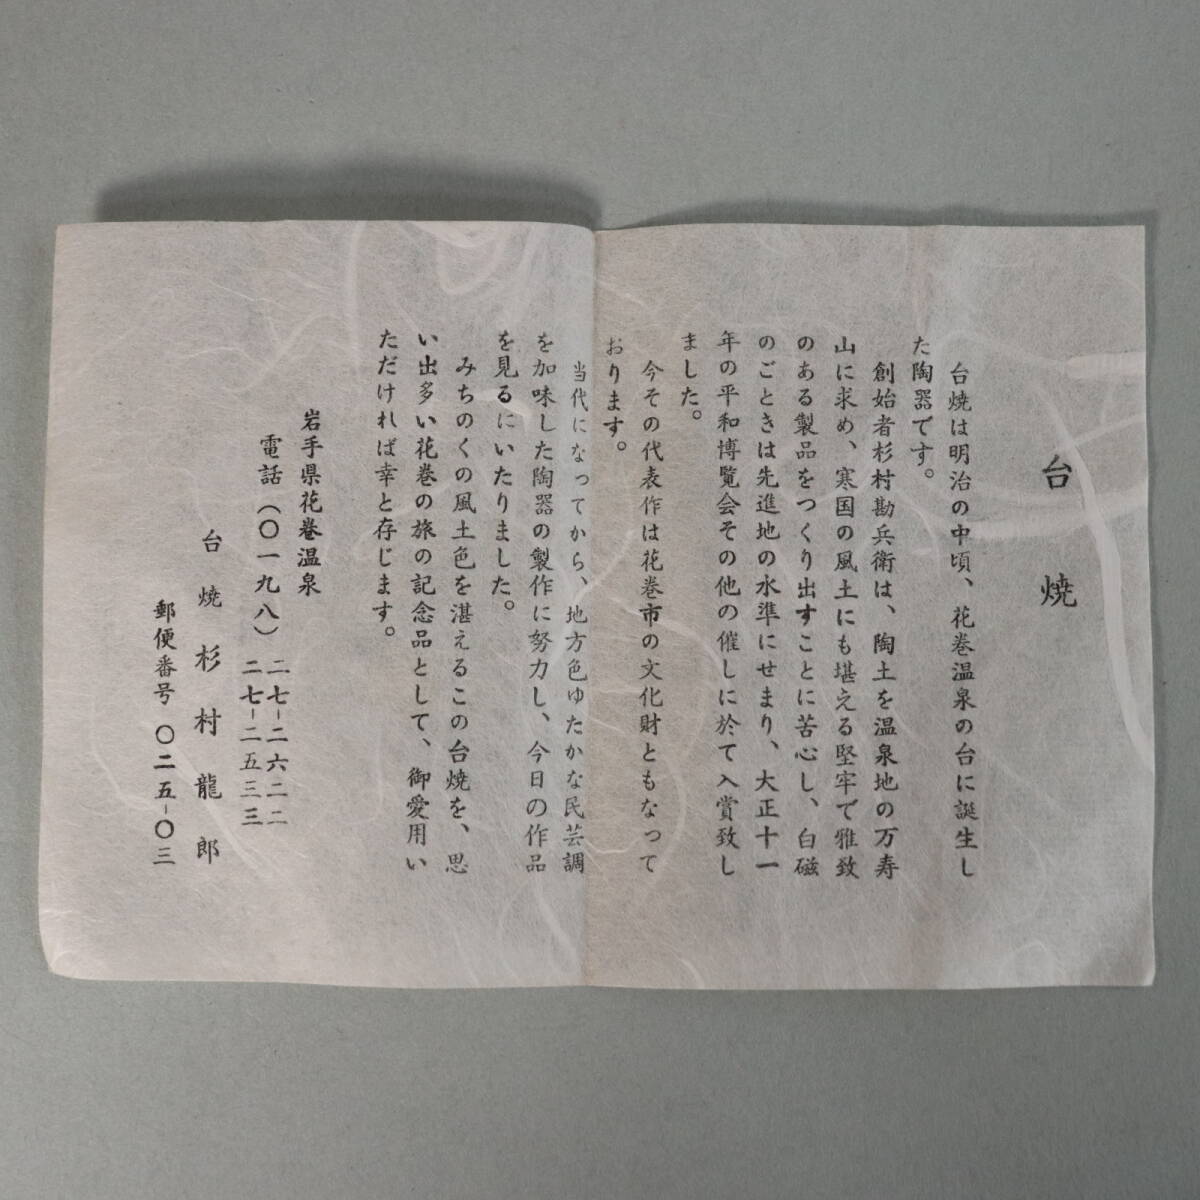 台焼
台焼は明治の中頃、花巻温泉の台に誕生し
た陶器です。
創始者杉村勘兵衛は、陶土を温泉地の万寿
山に求め、寒国の風土にも堪える堅牢で雅致
のある製品をつくり出すことに苦心し、白磁
のごときは先進地の水準にせまり、大正十一
年の平和博覧会その他の催しに於て入賞致し
ました。
今その代表作は花巻市の文化財ともなって
おります。
当代になってから、地方色ゆたかな民芸調
を加味した陶器の製作に努力し、今日の作品
を見るにいたりました。
みちのくの風土色を湛えるこの台焼を、思
い出多い花巻の旅の記念品として、御愛用い
ただければ幸と存じます。
岩手県花巻温泉
電話(〇一九八)二七-二六二二
二七-二五三三
台焼 杉村龍郎
郵便番号 〇二五-〇三